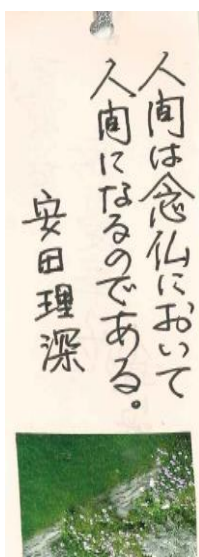 人間は念仏において
人間になるのである。
安田理深